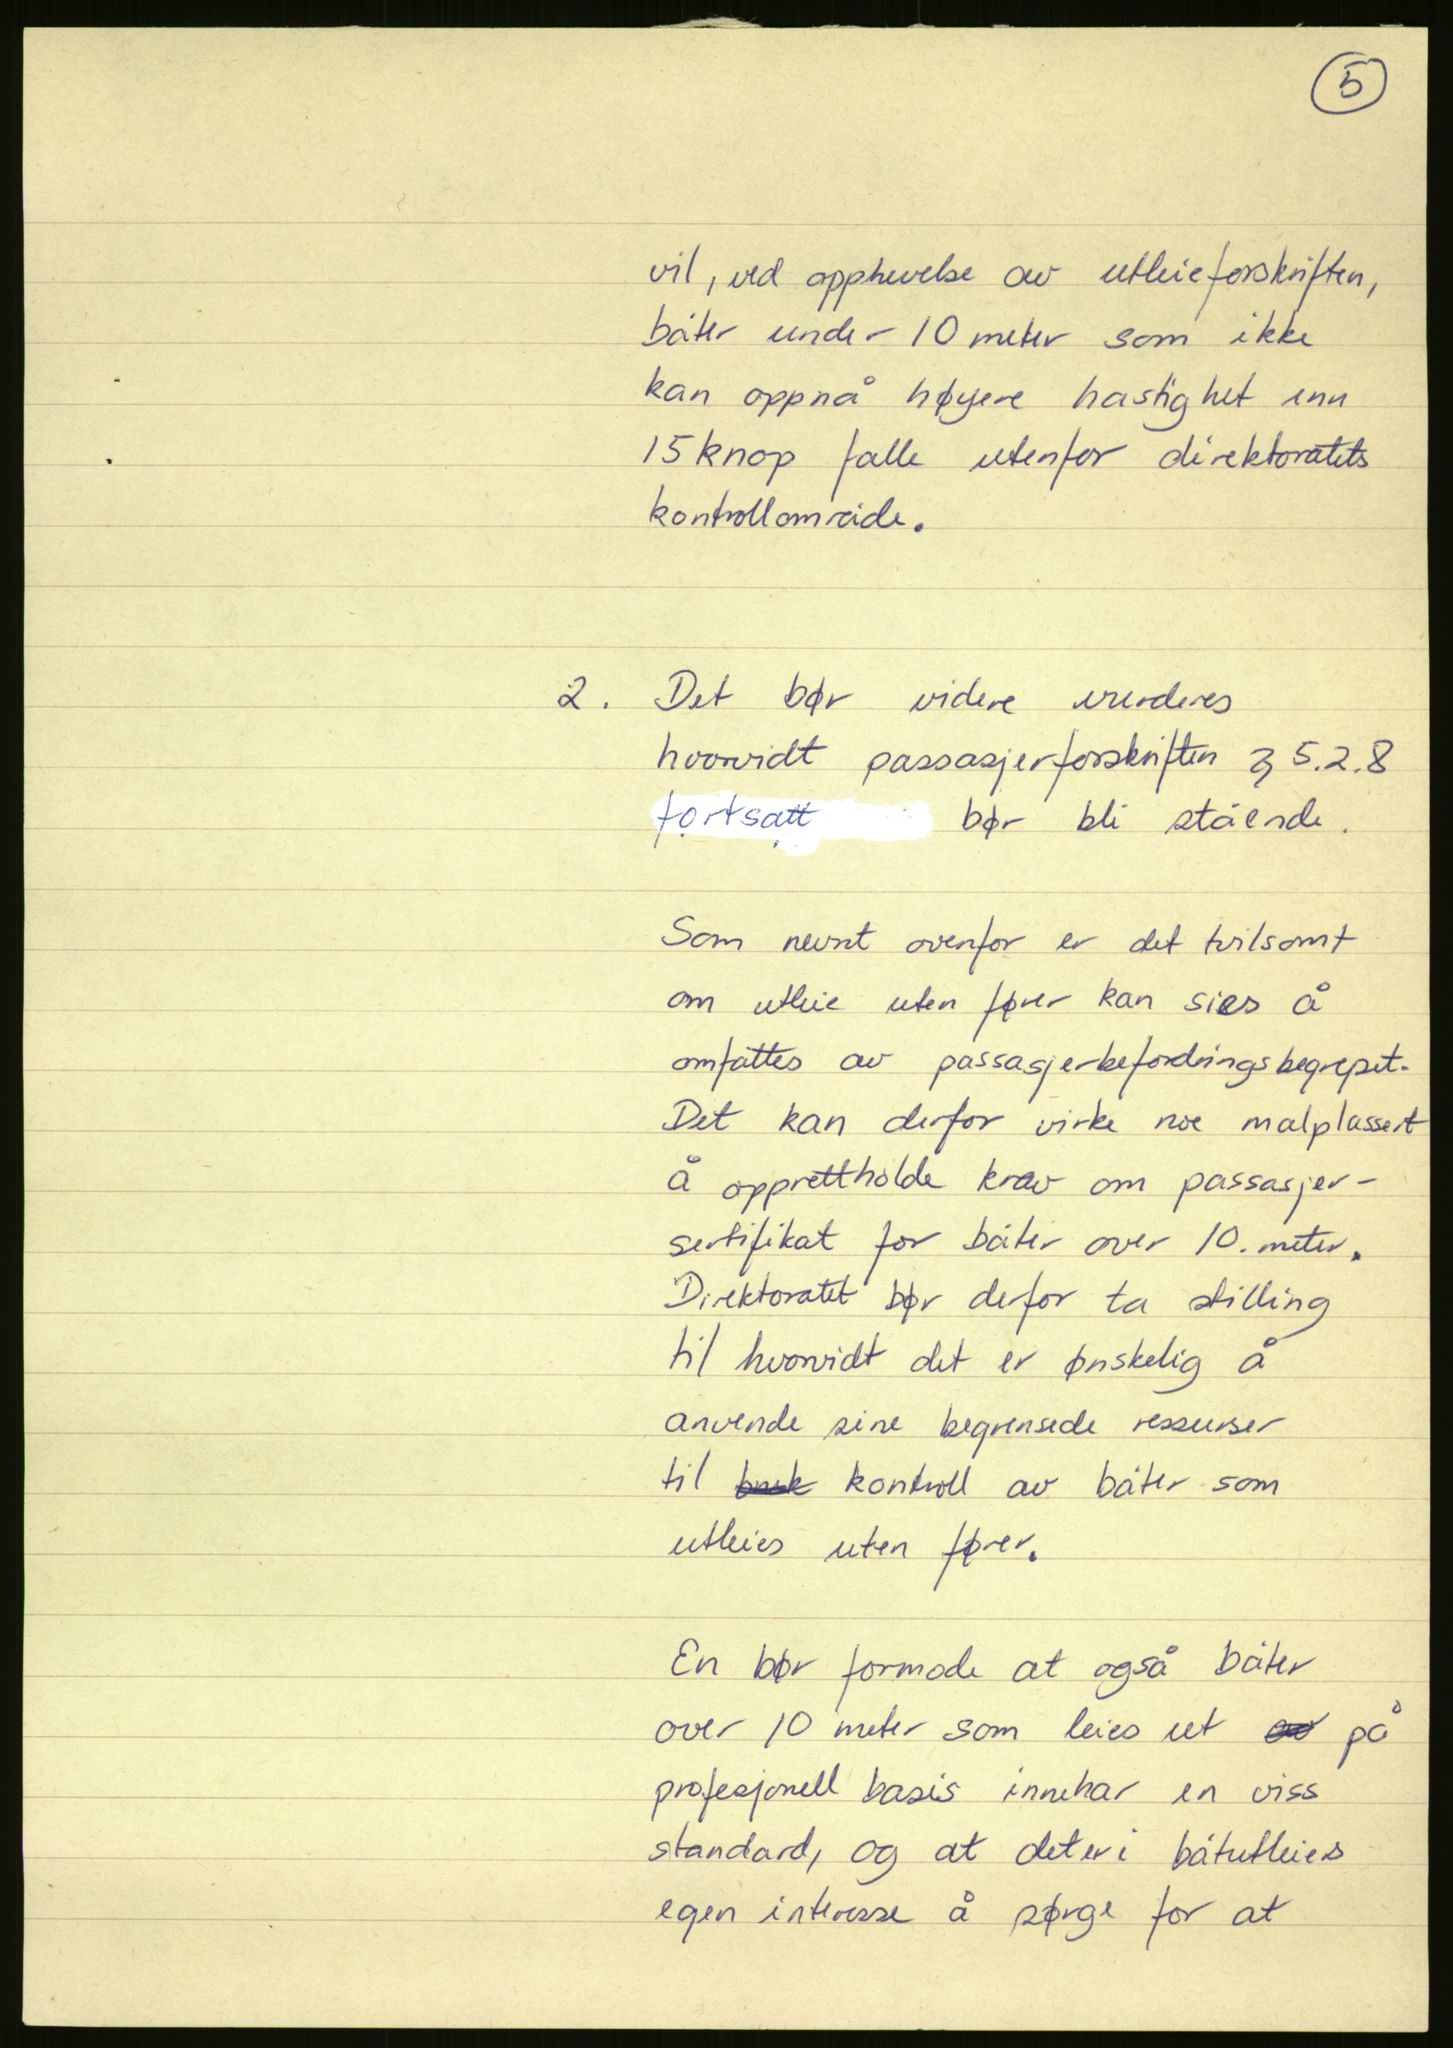 5
vil, ved opphevelse av utleieforskriften,
båter under 10 meter som ikke
kan oppnå høyere hastighet enn
15 knop falle utenfor direktoratets
kontrollområde.
2. Det bør videre vurderes
hvorvidt passasjerforskriften § 5.2.8
fortsatt bør bli stående.
Som nevnt ovenfor er det tvilsomt
om utleie uten fører kan sies å
omfattes av passasjerbefordringsbegrepet.
Det kan derfor virke noe malplassert
å opprettholde krav om passasjer-
sertifikat for båter over 10. meter.
Direktoratet bør derfor ta stilling
til hvorvidt det er ønskelig å
anvende sine begrensede ressurser
til kontroll av båter som
utleies uten fører.
En bør formode at også båter
over 10 meter som leies ut på
profesjonell basis innehar en viss
standard, og at det er i båtutleies
egen interesse å sørge for at